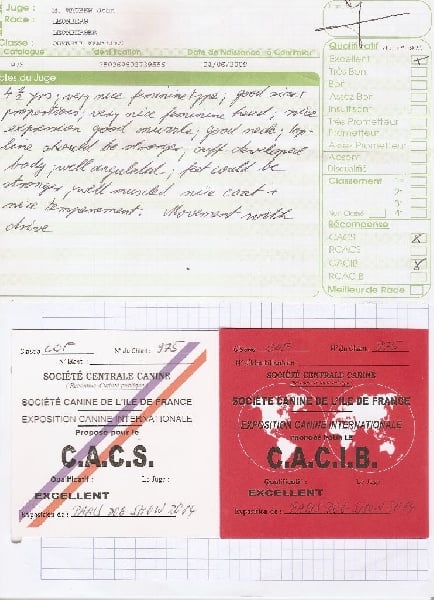 Juge :
Race :
LEONBERGER
Classe :
Catalogue Identification Date de Naissance à Confirmer
02/06/2009
Notes du Juge
4 ½ yrs; very nice feminine type; good size
proportions; very nice feminine head; nice
expression good muzzle; good neck; top-
line should be stronger; well developed
body; well angulated; feet could be
stronger; well muscled nice coat +
nice temperament. Movement with
drive
Qualificatif
Excellent X
Très Bon
Bon
Assez Bon
Insuffisant
Très Prometteur
Prometteur
Assez Prometteur
Absent
Disqualifié
Classement 1er
2e
3e
Non Classé 4e
Récompense
CACS X
RCACS
CACIB X
RCACIB
Meilleur de Race
Classe : COF N° du Chien : 975
SOCIÉTÉ CENTRALE CANINE
Reconnue d'utilité publique
SOCIÉTÉ CANINE DE L'ILE DE FRANCE
EXPOSITION CANINE INTERNATIONALE
Proposé pour le
C.A.C.S.
Qualificatif : Le Juge :
EXCELLENT
Exposition de : PARIS DOG SHOW 2014
Classe : COF N° du chien : 975
SOCIÉTÉ CENTRALE CANINE
SOCIÉTÉ CANINE DE L'ILE DE FRANCE
EXPOSITION CANINE INTERNATIONALE
PROPOSÉ POUR LE
C.A.C.I.B.
Qualificatif : Le Juge :
EXCELLENT
Exposition de : PARIS DOG SHOW 2014